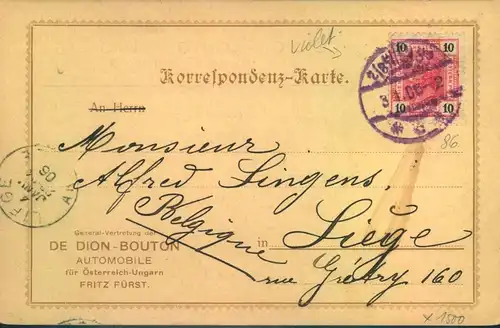 violet
10 10
10 10
Korrespondenz-Karte.
An Herrn
86.
Monsieur
Alfred Lingens.
Belgique
in Liège
rue Grétry 160
General-Vertretung der
DE DION-BOUTON
AUTOMOBILE
für Österreich-Ungarn
FRITZ FÜRST.
x 1800